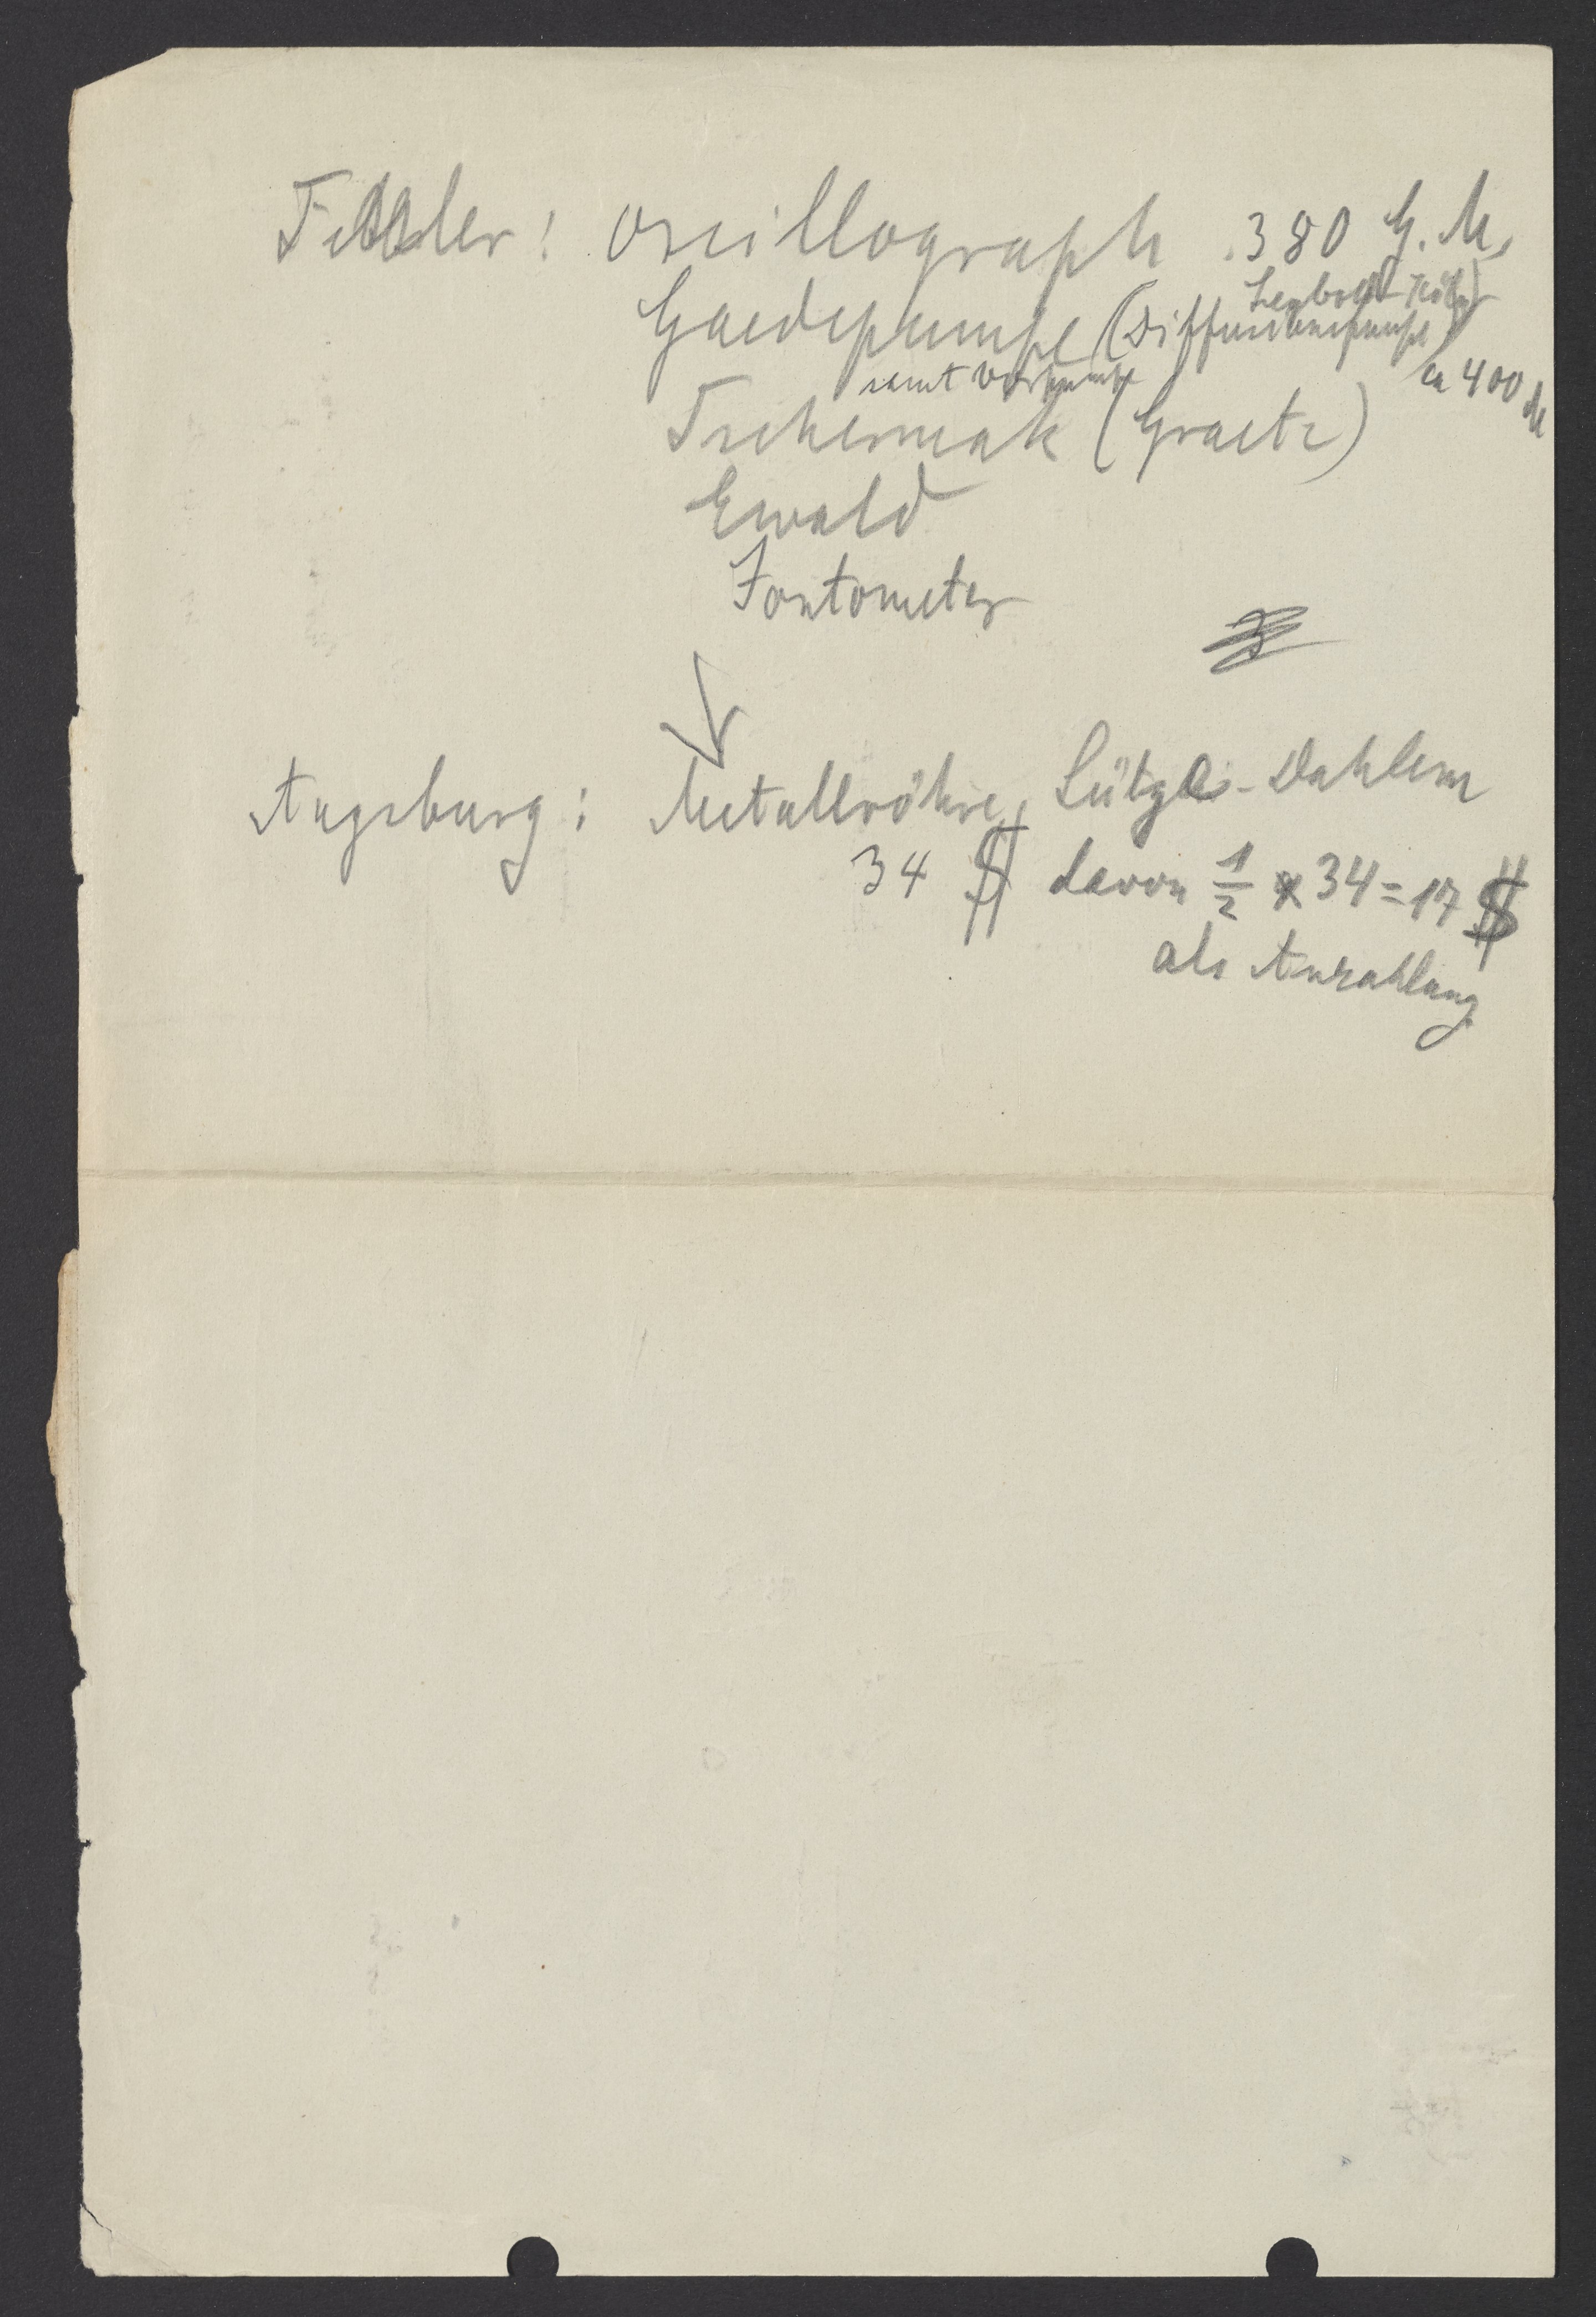 Oscillograph 380 G. M.
Leybold-Köln
Gaedepumpe (Diffusionspumpe)
samt Vorpumpe ca 400 M
Tschermak (Graetz)
Ewald
Augsburg: Metallröhre, Dahlem
34 $ davon 1/2 x 34 = 17 $
als Anzahlung